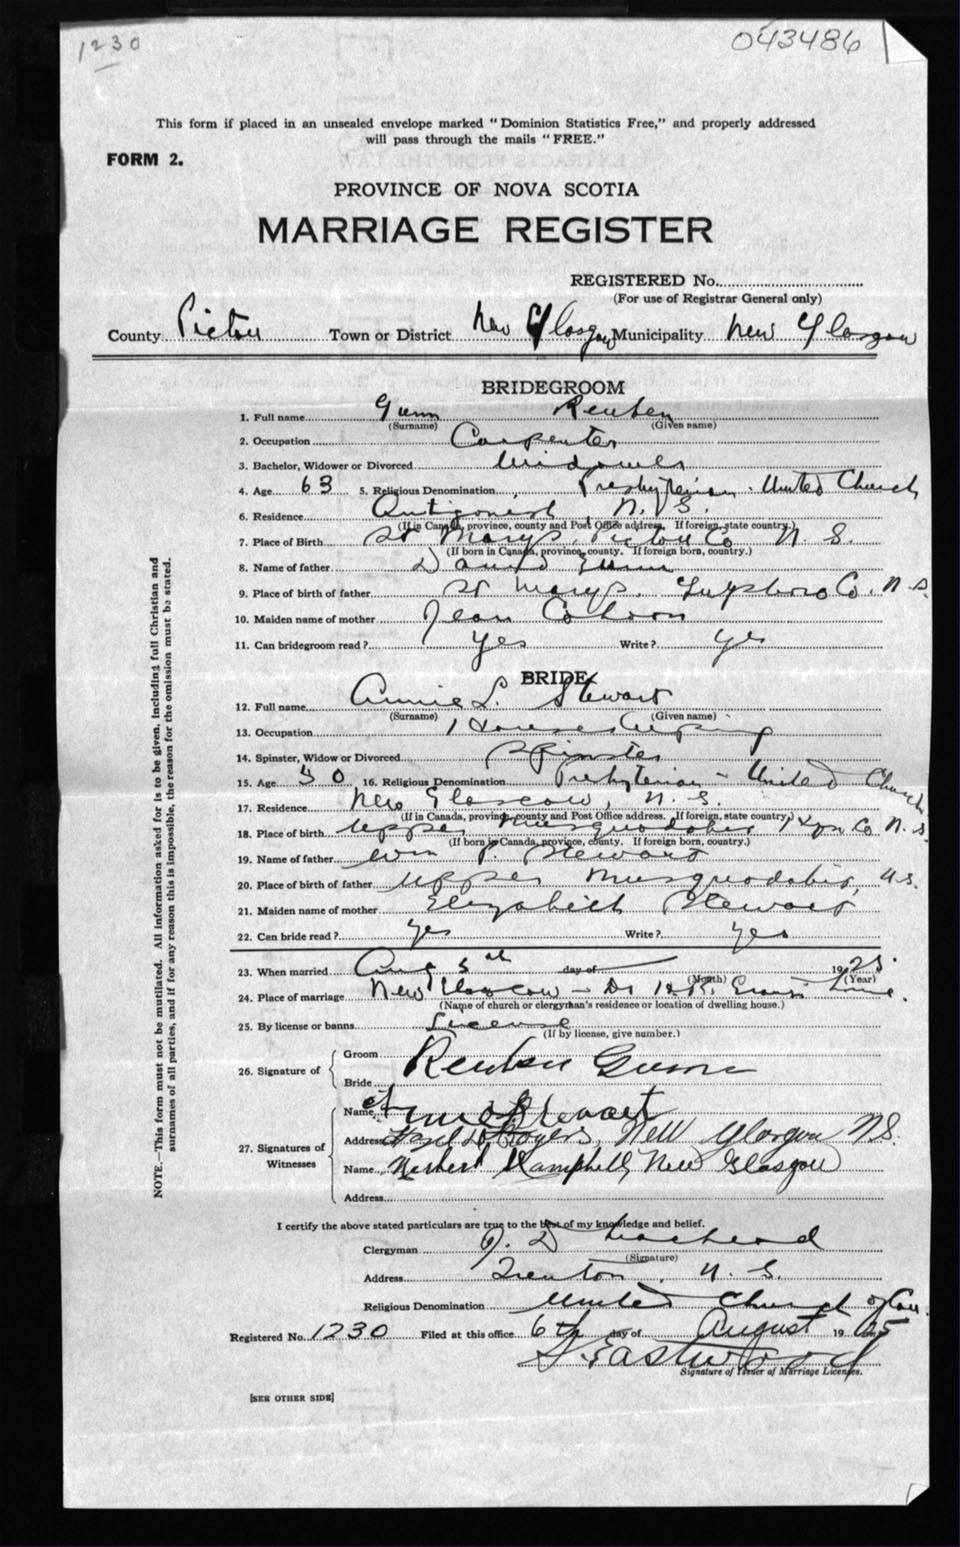 1230
043486
This form if placed in an unsealed envelope marked "Dominion Statistics Free," and properly addressed
will pass through the mails "FREE."
FORM 2.
PROVINCE OF NOVA SCOTIA
MARRIAGE REGISTER
REGISTERED No.
(For use of Registrar General only)
County Pictou Town or District New Glasgow Municipality New Glasgow
BRIDEGROOM
1. Full name Gunn Reuben
(Surname) (Given name)
2. Occupation Carpenter
3. Bachelor, Widower or Divorced Widower
4. Age 63 5. Religious Denomination Presbyterian - United Church
6. Residence Antigonish N. S.
(If in Canada, province, county and Post Office address. If foreign, state country.)
7. Place of Birth St Marys, Pictou Co N. S.
(If born in Canada, province, county. If foreign born, country.)
8. Name of father David Gunn
9. Place of birth of father St Marys, Guysboro Co. N. S.
10. Maiden name of mother Jean
11. Can bridegroom read? yes Write? yes
BRIDE
12. Full name Annie L. Stewart
(Surname) (Given name)
13. Occupation Housekeeping
14. Spinster, Widow or Divorced Spinster
15. Age 50 16. Religious Denomination Presbyterian - United Church
17. Residence New Glascow, N. S.
(If in Canada, province, county and Post Office address. If foreign, state country.)
18. Place of birth Upper Musquodobit Co N. S.
(If born in Canada, province, county. If foreign born, country.)
19. Name of father Wm Stewart
20. Place of birth of father Upper Musquodobit, N.S.
21. Maiden name of mother Elizabeth Stewart
22. Can bride read? yes Write? yes
23. When married Aug 5th day of 1925
(Month) (Year)
24. Place of marriage New Glascow - Dr
(Name of church or clergyman's residence or location of dwelling house.)
25. By license or banns License
(If by license, give number.)
26. Signature of
Groom Reuben Gunn
Bride
27. Signatures of Witnesses
Name Stewart
Address Rogers, New Glasgow N.S.
Name Herbert Campbell, New Glasgow
Address
I certify the above stated particulars are true to the best of my knowledge and belief.
Clergyman
(Signature)
Address Trenton, N. S.
Religious Denomination United Church of Can.
Registered No. 1230 Filed at this office 6th day of August 1925
Eastwood
Signature of Issuer of Marriage Licenses.
[SEE OTHER SIDE]
NOTE.—This form must not be mutilated. All information asked for is to be given, including full Christian and
surnames of all parties, and if for any reason this is impossible, the reason for the omission must be stated.